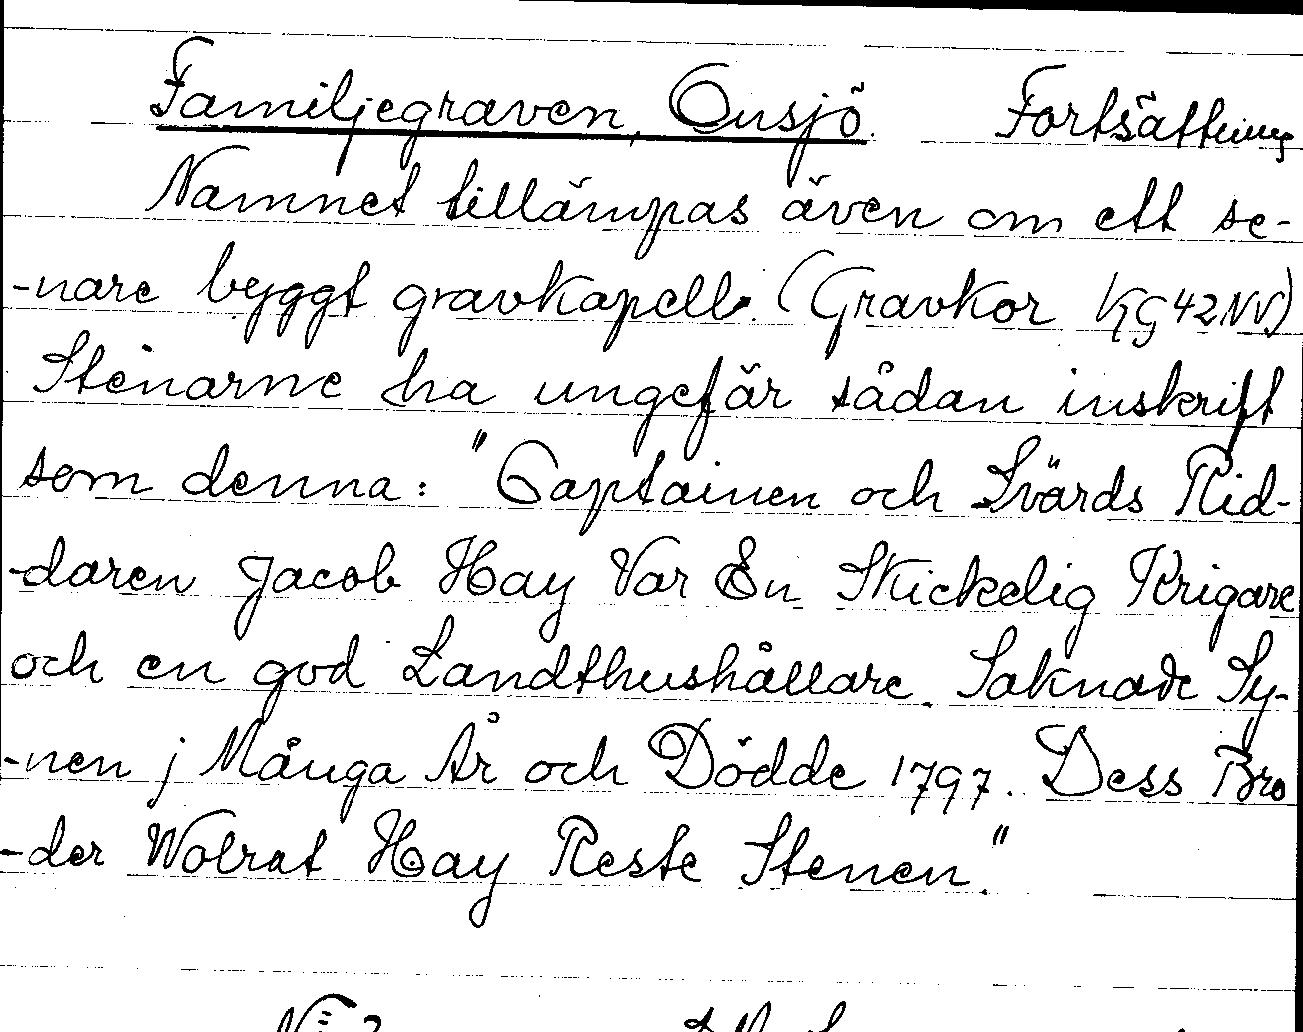 Familjegraven, Onsjö. Fortsättning
Namnet tillämpas även om ett se-
-nare byggt gravkapell. (Gravkor KG42NV)
Stenarne ha ungefär sådan inskrift
som denna: "Captainen och Svärds Rid-
-daren Jacob Hay Var En Skickelig Krigare
och en god Landthushållare. Saknade Sy-
-nen j Många År och Dödde 1797. Dess Bro
-der Wolrat Hay Reste Stenen."